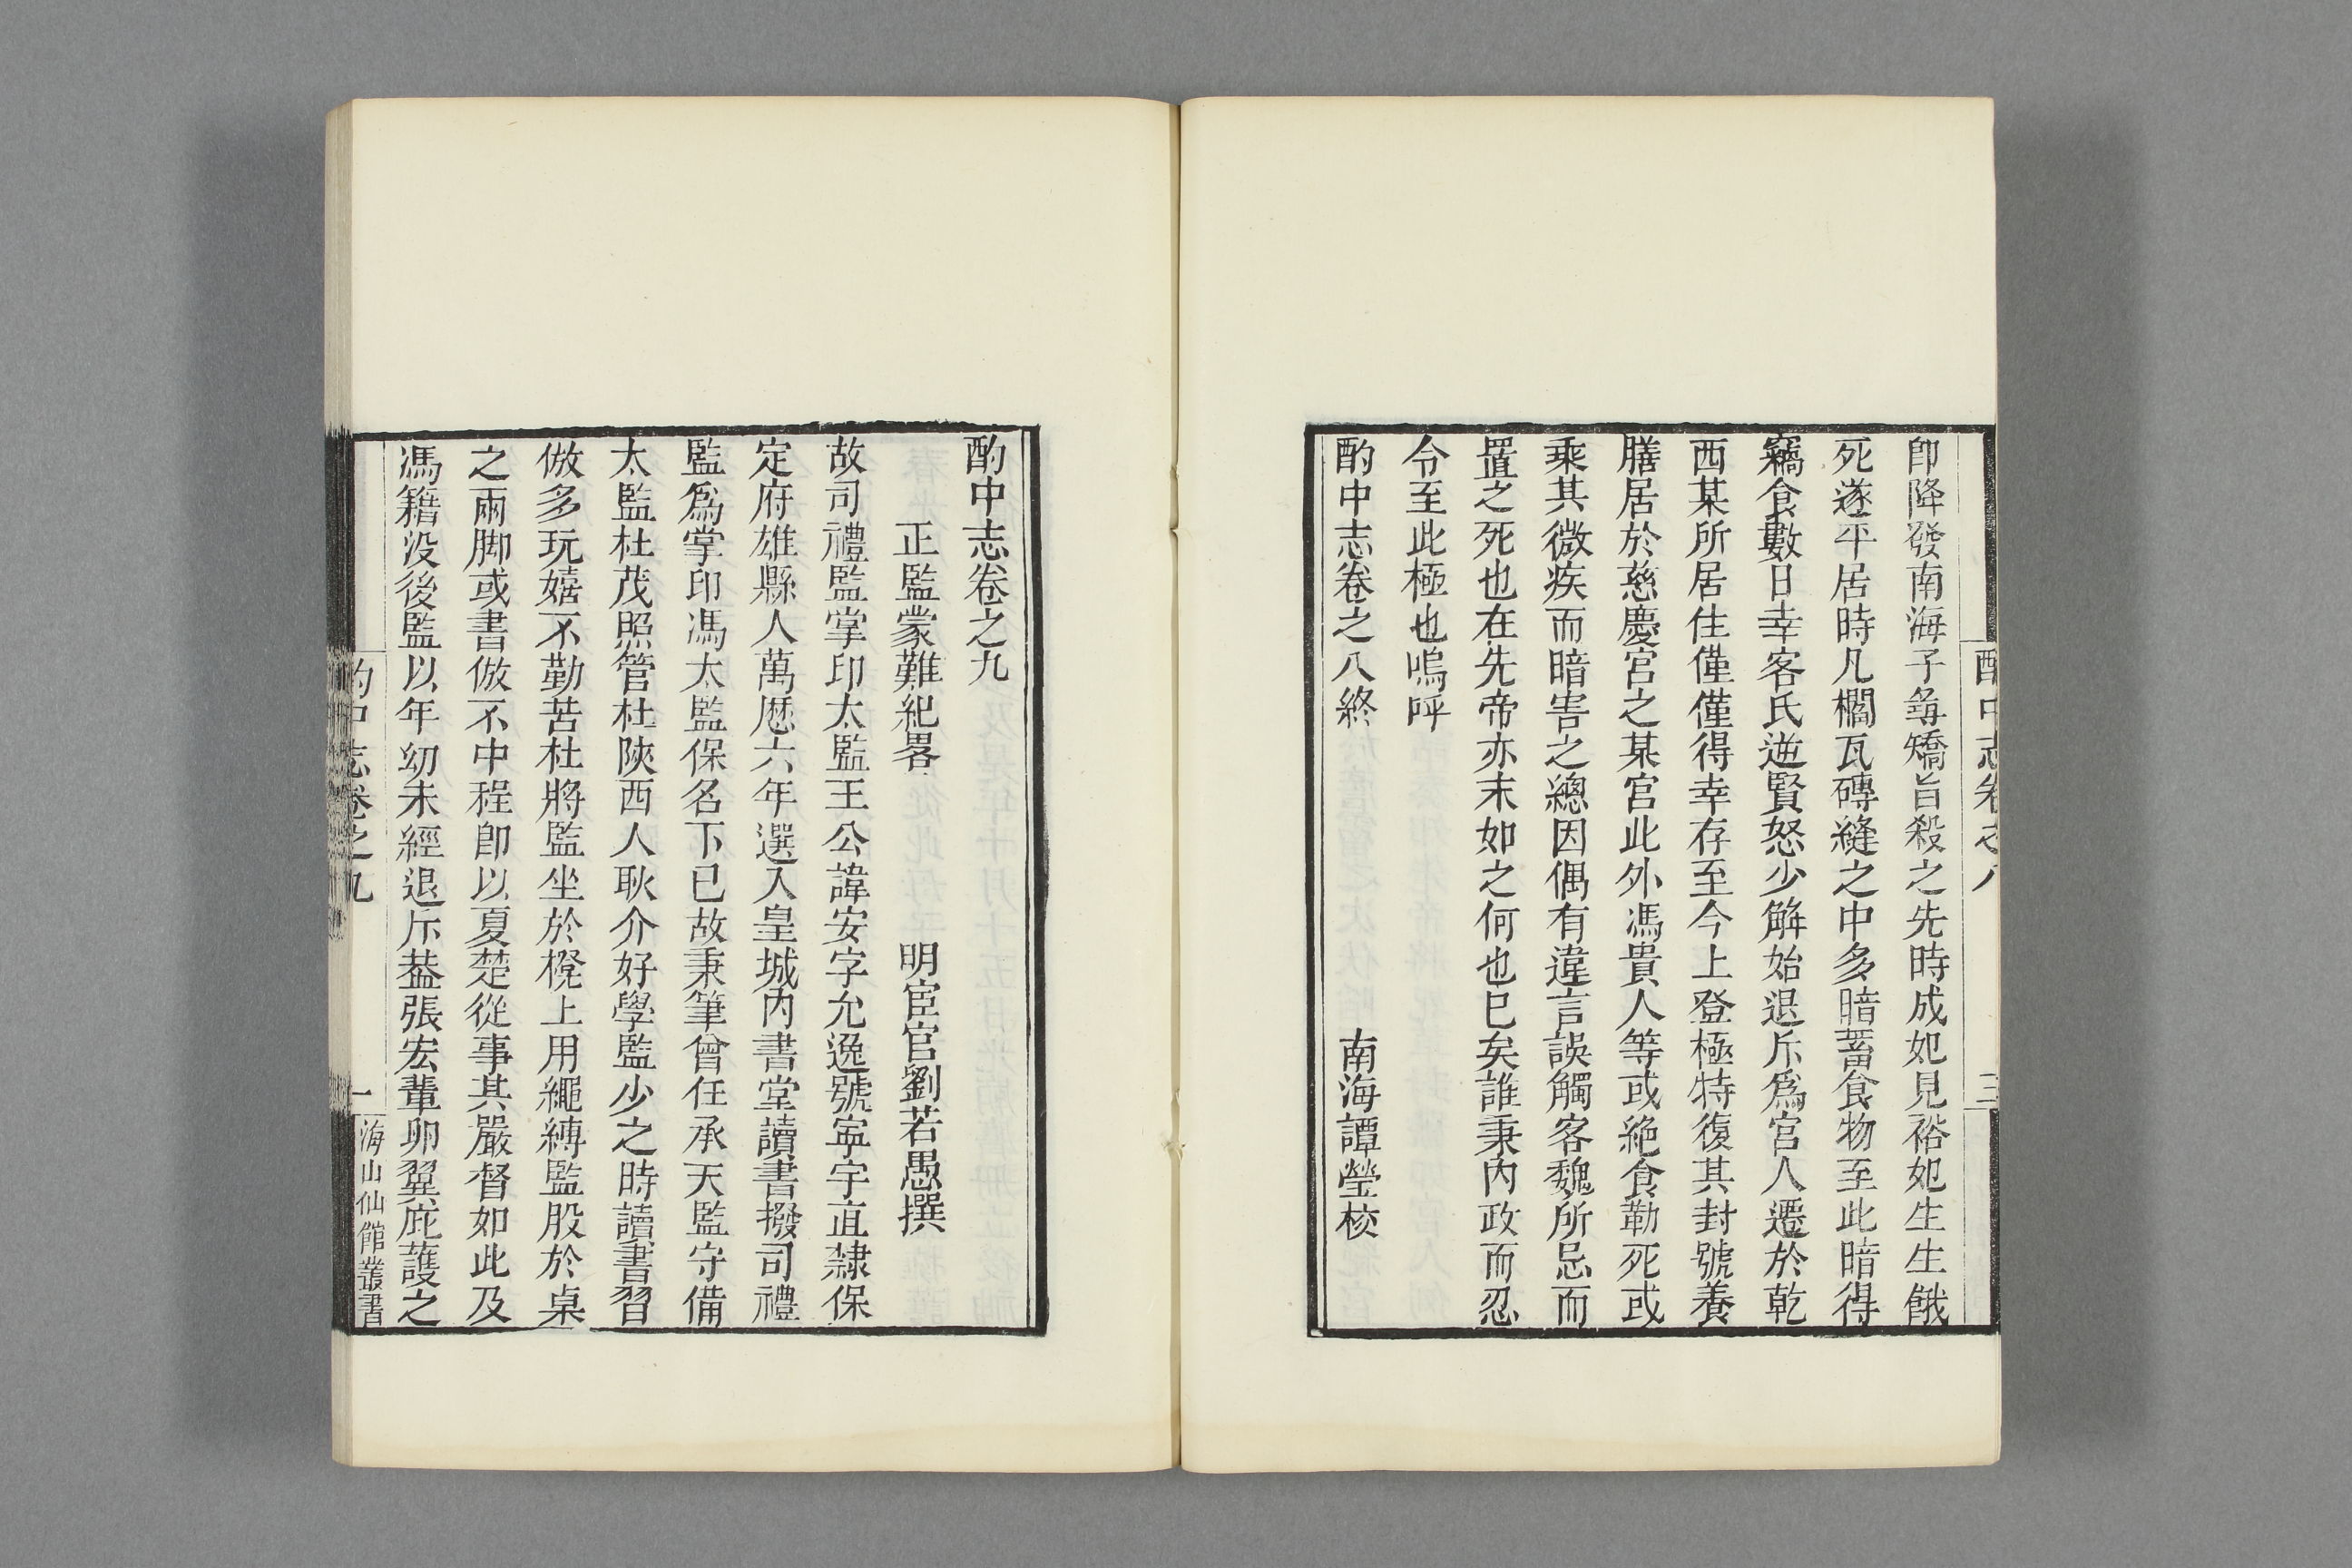 酌中志卷之八
三
卽降發南海子尋矯旨殺之先時成妃見裕妃生生餓
死遂平居時凡櫊瓦磚縫之中多暗蓄食物至此暗得
竊食數日幸客氏逆賢怒少解始退斥爲宮人遷於乾
西某所居住僅僅得幸存至今上登極特復其封號養
膳居於慈慶宮之某宮此外馮貴人等或絶食勒死或
乘其微疾而暗害之總因偶有違言誤觸客魏所忌而
置之死也在先帝亦末如之何也已矣誰秉內政而忍
令至此極也嗚呼
酌中志卷之八終
南海譚瑩校
酌中志卷之九
正監蒙難紀畧
明宦官劉若愚撰
故司禮監掌印太監王公諱安字允逸號寧宇直隸保
定府雄縣人萬厯六年選入皇城內書堂讀書撥司禮
監爲掌印馮太監保名下已故秉筆曾任承天監守備
太監杜茂照管杜陝西人耿介好學監少之時讀書習
倣多玩嬉不勤苦杜將監坐於櫈上用繩縛監股於桌
之兩脚或書倣不中程卽以夏楚從事其嚴督如此及
馮籍没後監以年幼未經退斥葢張宏輩卵翼庇護之
酌中志卷之九
一
海山仙館叢書